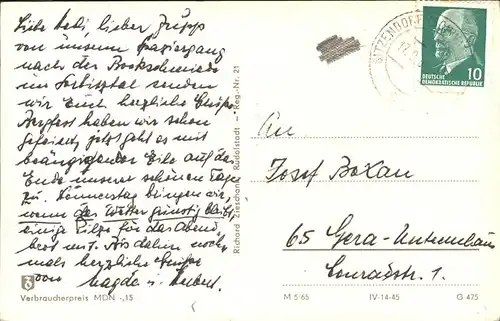 Liebe Hedi, lieber Seppp
von unserem Spaziergang
nach der Bockschmiede
im Sorbitztal senden
wir Euch herzliche Grüße
haben wir schon
gefeiert, jetzt geht es mit
beängstigender Eile auf das
Ende unserer schönen Tage
zu. Donnerstag bringen wir,
wenn das Wetter günstig bleibt,
einige Pilze für das Abend-
brot mit. Bis dahin noch-
mals herzliche Grüße
von Magda u. Hubert.
Verbraucherpreis MDN -,15
Richard Zieschank, Rudolstadt – Reg.-Nr. 21
SITZENDORF
DEUTSCHE
DEMOKRATISCHE REPUBLIK
10
An
Josef Bokan
65 Gera-Untermhaus
Conradstr. 1.
M 5/65 IV-14-45 G 475